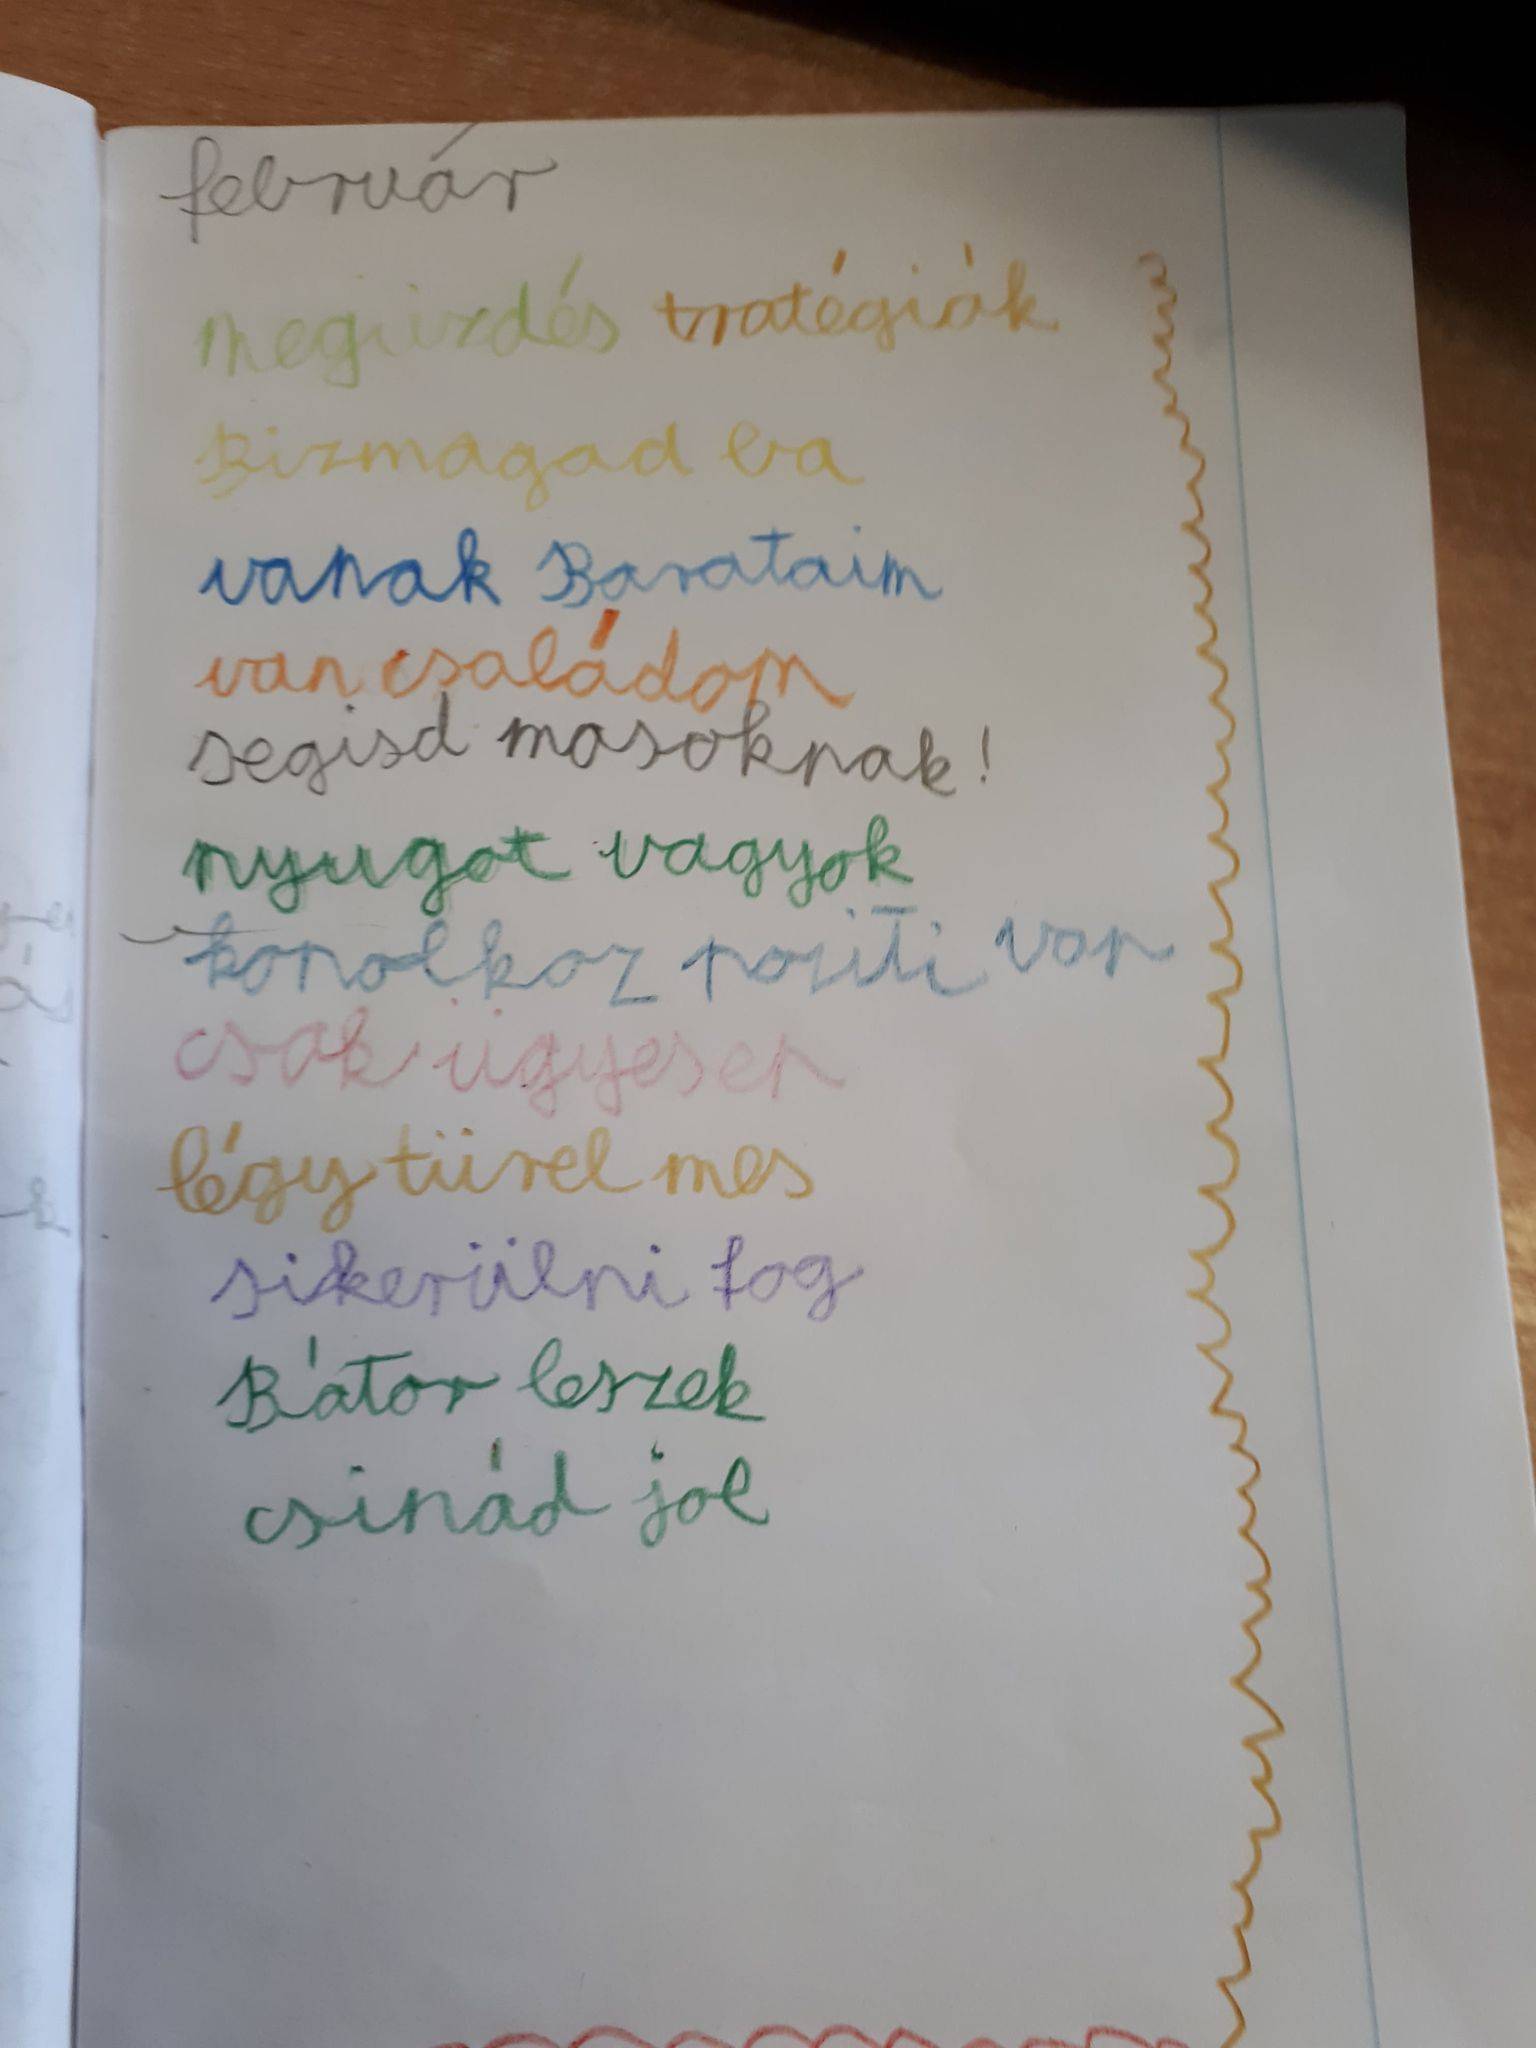 február
megiizdés tratégiák
Bizmagad ba
vanak Barataim
van családom
segisd masoknak!
nyugot vagyok
konolkoz poziti van
csak ügyesen
légy türel mes
sikerülni fog
Bátor leszek
csinád jol